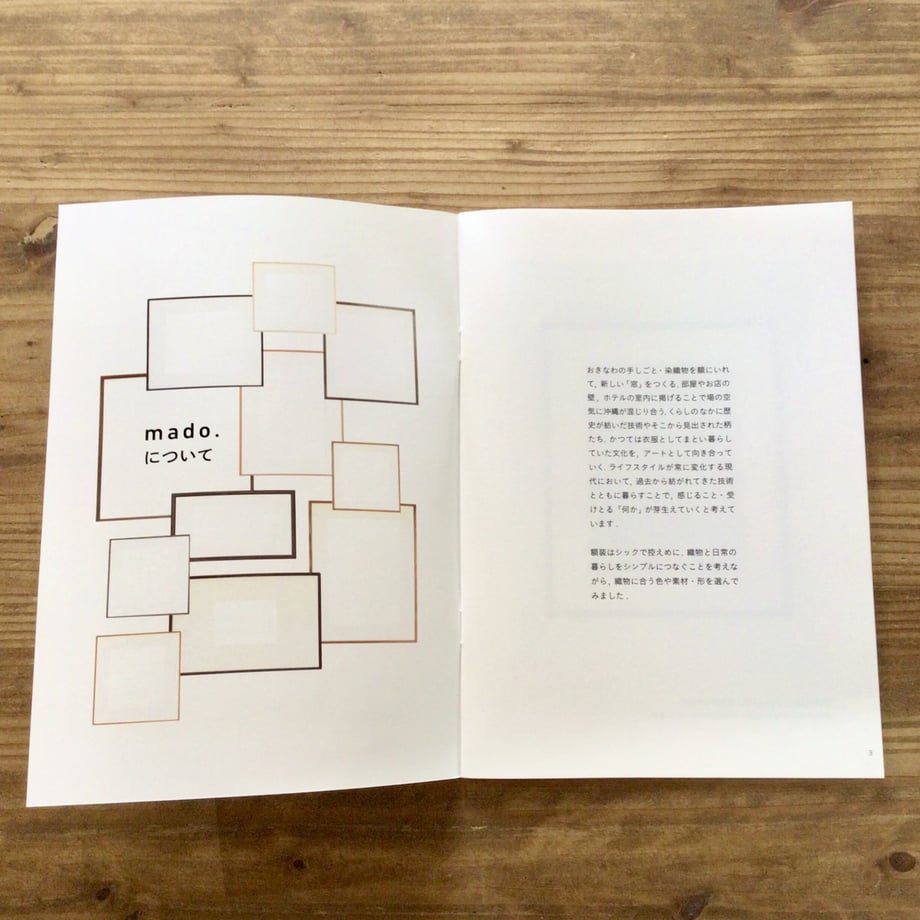 mado.
について
おきなわの手しごと・染織物を額にいれ
て, 新しい「窓」をつくる. 部屋やお店の
壁, ホテルの室内に掲げることで場の空
気に沖縄が混じり合う. くらしのなかに歴
史が紡いだ技術やそこから見出された柄
たち. かつては衣服としてまとい暮らし
ていた文化を, アートとして向き合って
いく. ライフスタイルが常に変化する現
代において, 過去から紡がれてきた技術
とともに暮らすことで, 感じること・受
けとる「何か」が芽生えていくと考えて
います.
額装はシックで控えめに. 織物と日常の
暮らしをシンプルにつなぐことを考えな
がら, 織物に合う色や素材・形を選んで
みました.
3